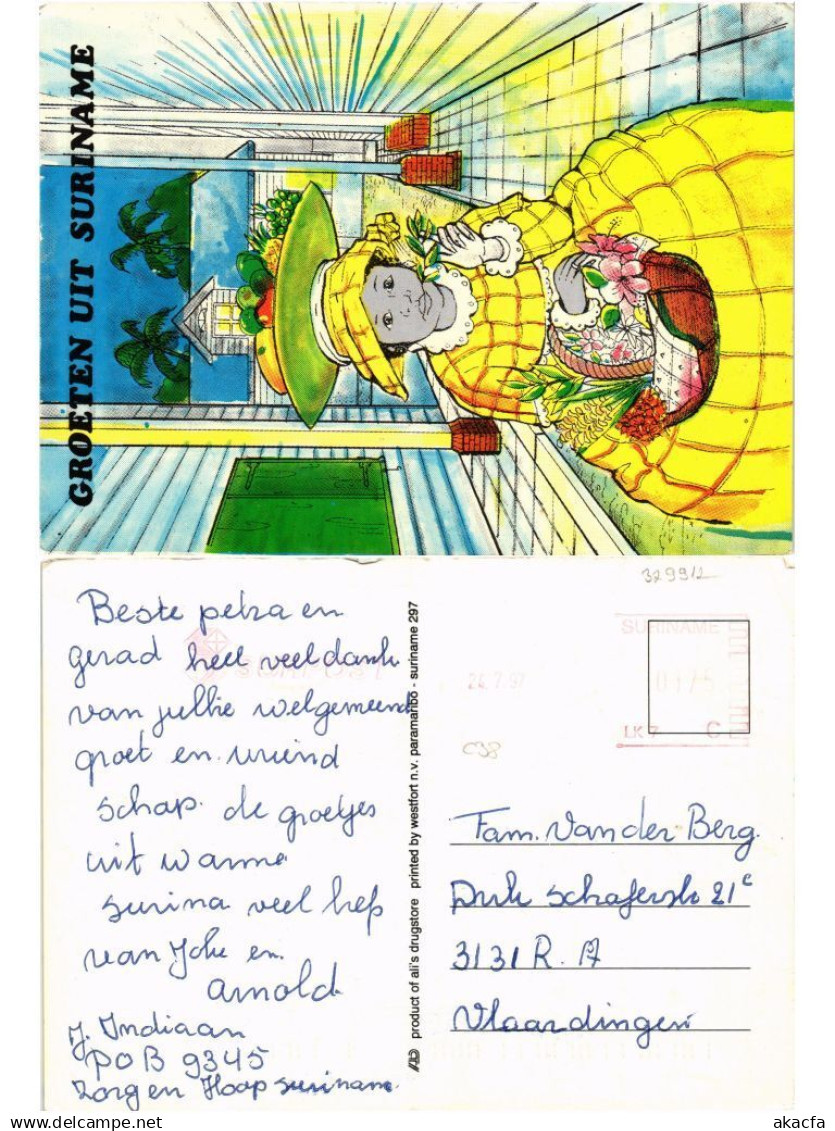 GROETEN UIT SURINAME
329912
Beste petra en
gerad heel veel dank
van jullie welgemeend
groet en vriend
schap. de groetjes
uit warme
surina veel liefs
van Joke en
arnold
J. Indiaan
POB 9345
Zorg en Hoop Suriname
product of ali's drugstore printed by westfort n.v. paramaribo - suriname 297
SURINAME
0175
LK 7 C
24.7.97
C38
Fam. Van der Berg.
Dirk Schaferstr 21c
3131 R. A
Vlaardingen
www.delcampe.net
akacfa